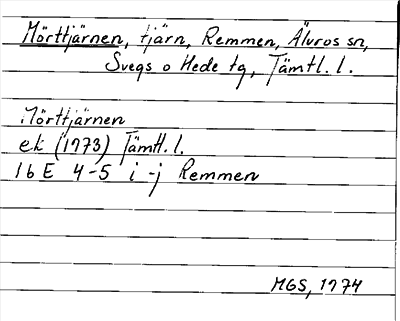 Mörttjärnen, tjärn, Remmen, Älvros sn,
Svegs o Hede tg, Jämtl. l.
Mörttjärnen
ek (1973) Jämtl. l.
16 E 4-5 i-j Remmen
MGS, 1974